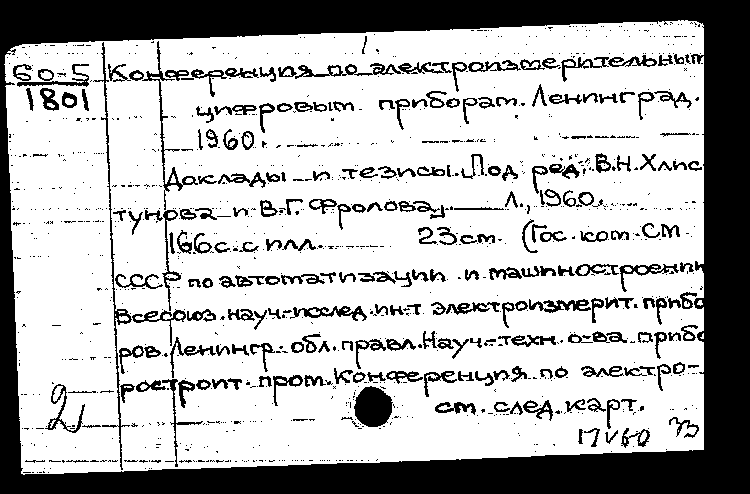 60-5 Конференция по электроизмерительным
1801 цифровым приборам. Ленинград.
1960.
Доклады и тезисы. Под ред. В.Н. Хлис-
тунова и В.Г. Фролова. Л., 1960.
166 с. с илл. 23 см. (Гос. ком. СМ
СССР по автоматизации и машиностроению
Всесоюз. науч.-исслед. ин-т электроизмерит. прибо
ров. Ленингр. обл. правл. Науч.-техн. о-ва прибо
ростроит. пром. Конференция по электро-
см. след. карт.
2